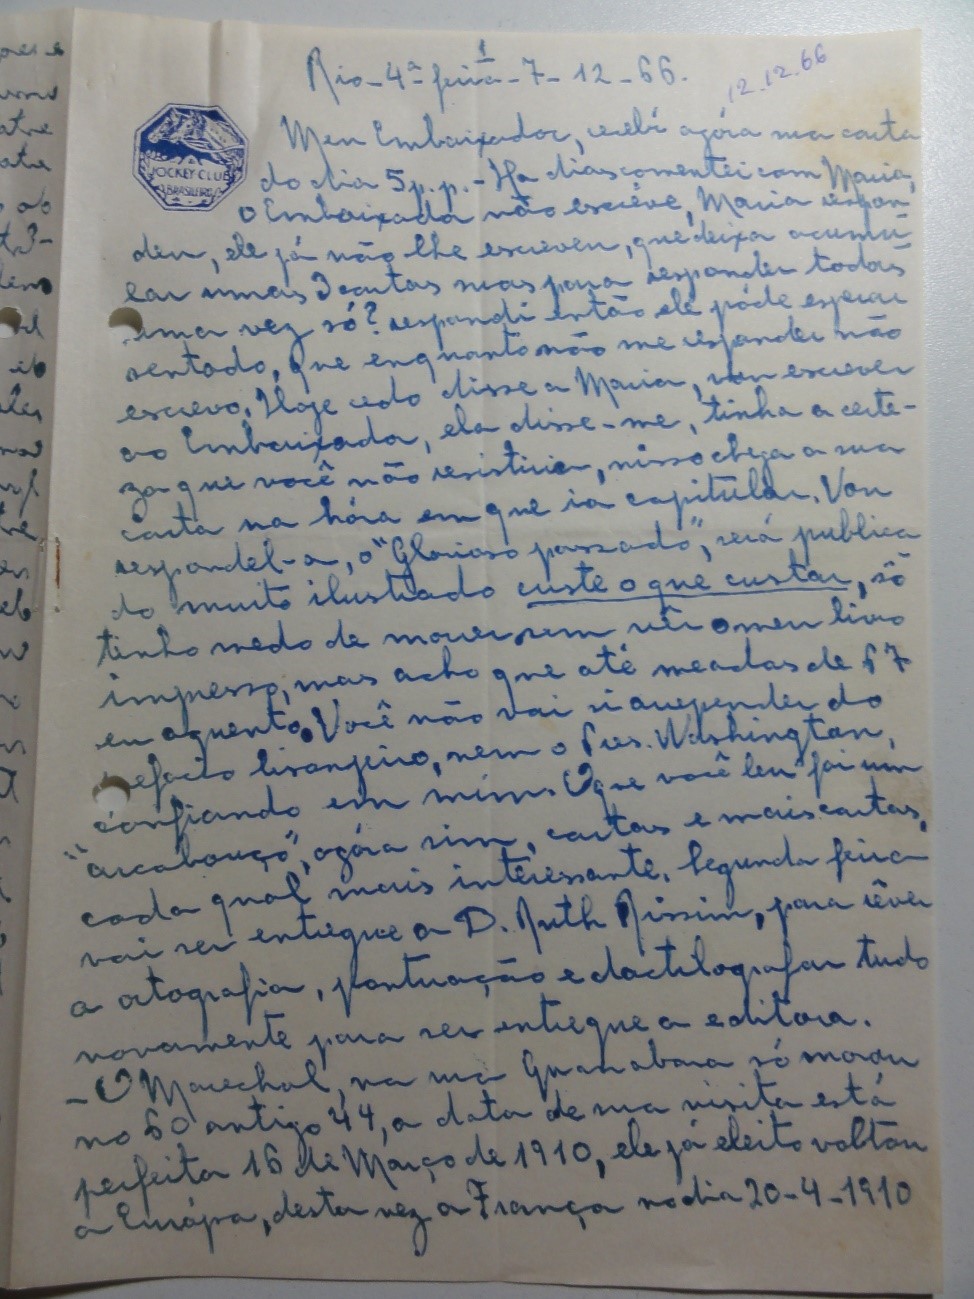 1
Rio - 4ª feira - 7 - 12 - 66.
12.12.66
JOCKEY-CLUB
BRASILEIRO
Meu Embaixador, recebi agóra sua carta
do dia 5 p.p. - Ha dias comentei com Maria,
o Embaixador não escréve, Maria respon-
deu, ele já não lhe escreveu, que deixa acumú-
lar umas 3 cartas suas para responder todas
uma vez só? respondi então ele póde esperar
sentado, que enquanto não me responder não
escrevo. Hoje cedo disse a Maria, vou escrever
ao Embaixador, ela disse-me, tinha a certe-
za que você não resistiria, nisso chega a sua
carta na hóra em que ia capitular. Vou
respondel-a, o "Glorioso passado", será publica
do muito ilustrado custe o que custar, só
tenho medo de morrer sem vêr o meu livro
impresso, mas acho que até meados de 67
eu aguento. Você não vai si arrepender do
prefacio lisongeiro, nem o Pres. Washington,
confiando em mim. O que você leu foi um
"arcabouço", agóra sim, cartas e mais cartas,
cada qual mais interessante. Segunda feira
vai ser entregue a D. Ruth Rissim, para rêver
a ortografia, pontuação e dactilografar tudo
novamente para ser entregue a editora.
- O Marechal, na rua Guanabara só morou
no 60 antigo 44, a data de sua visita está
perfeita 16 de Março de 1910, ele já eleito voltou
a Európa, desta vez a França no dia 20-4-1910